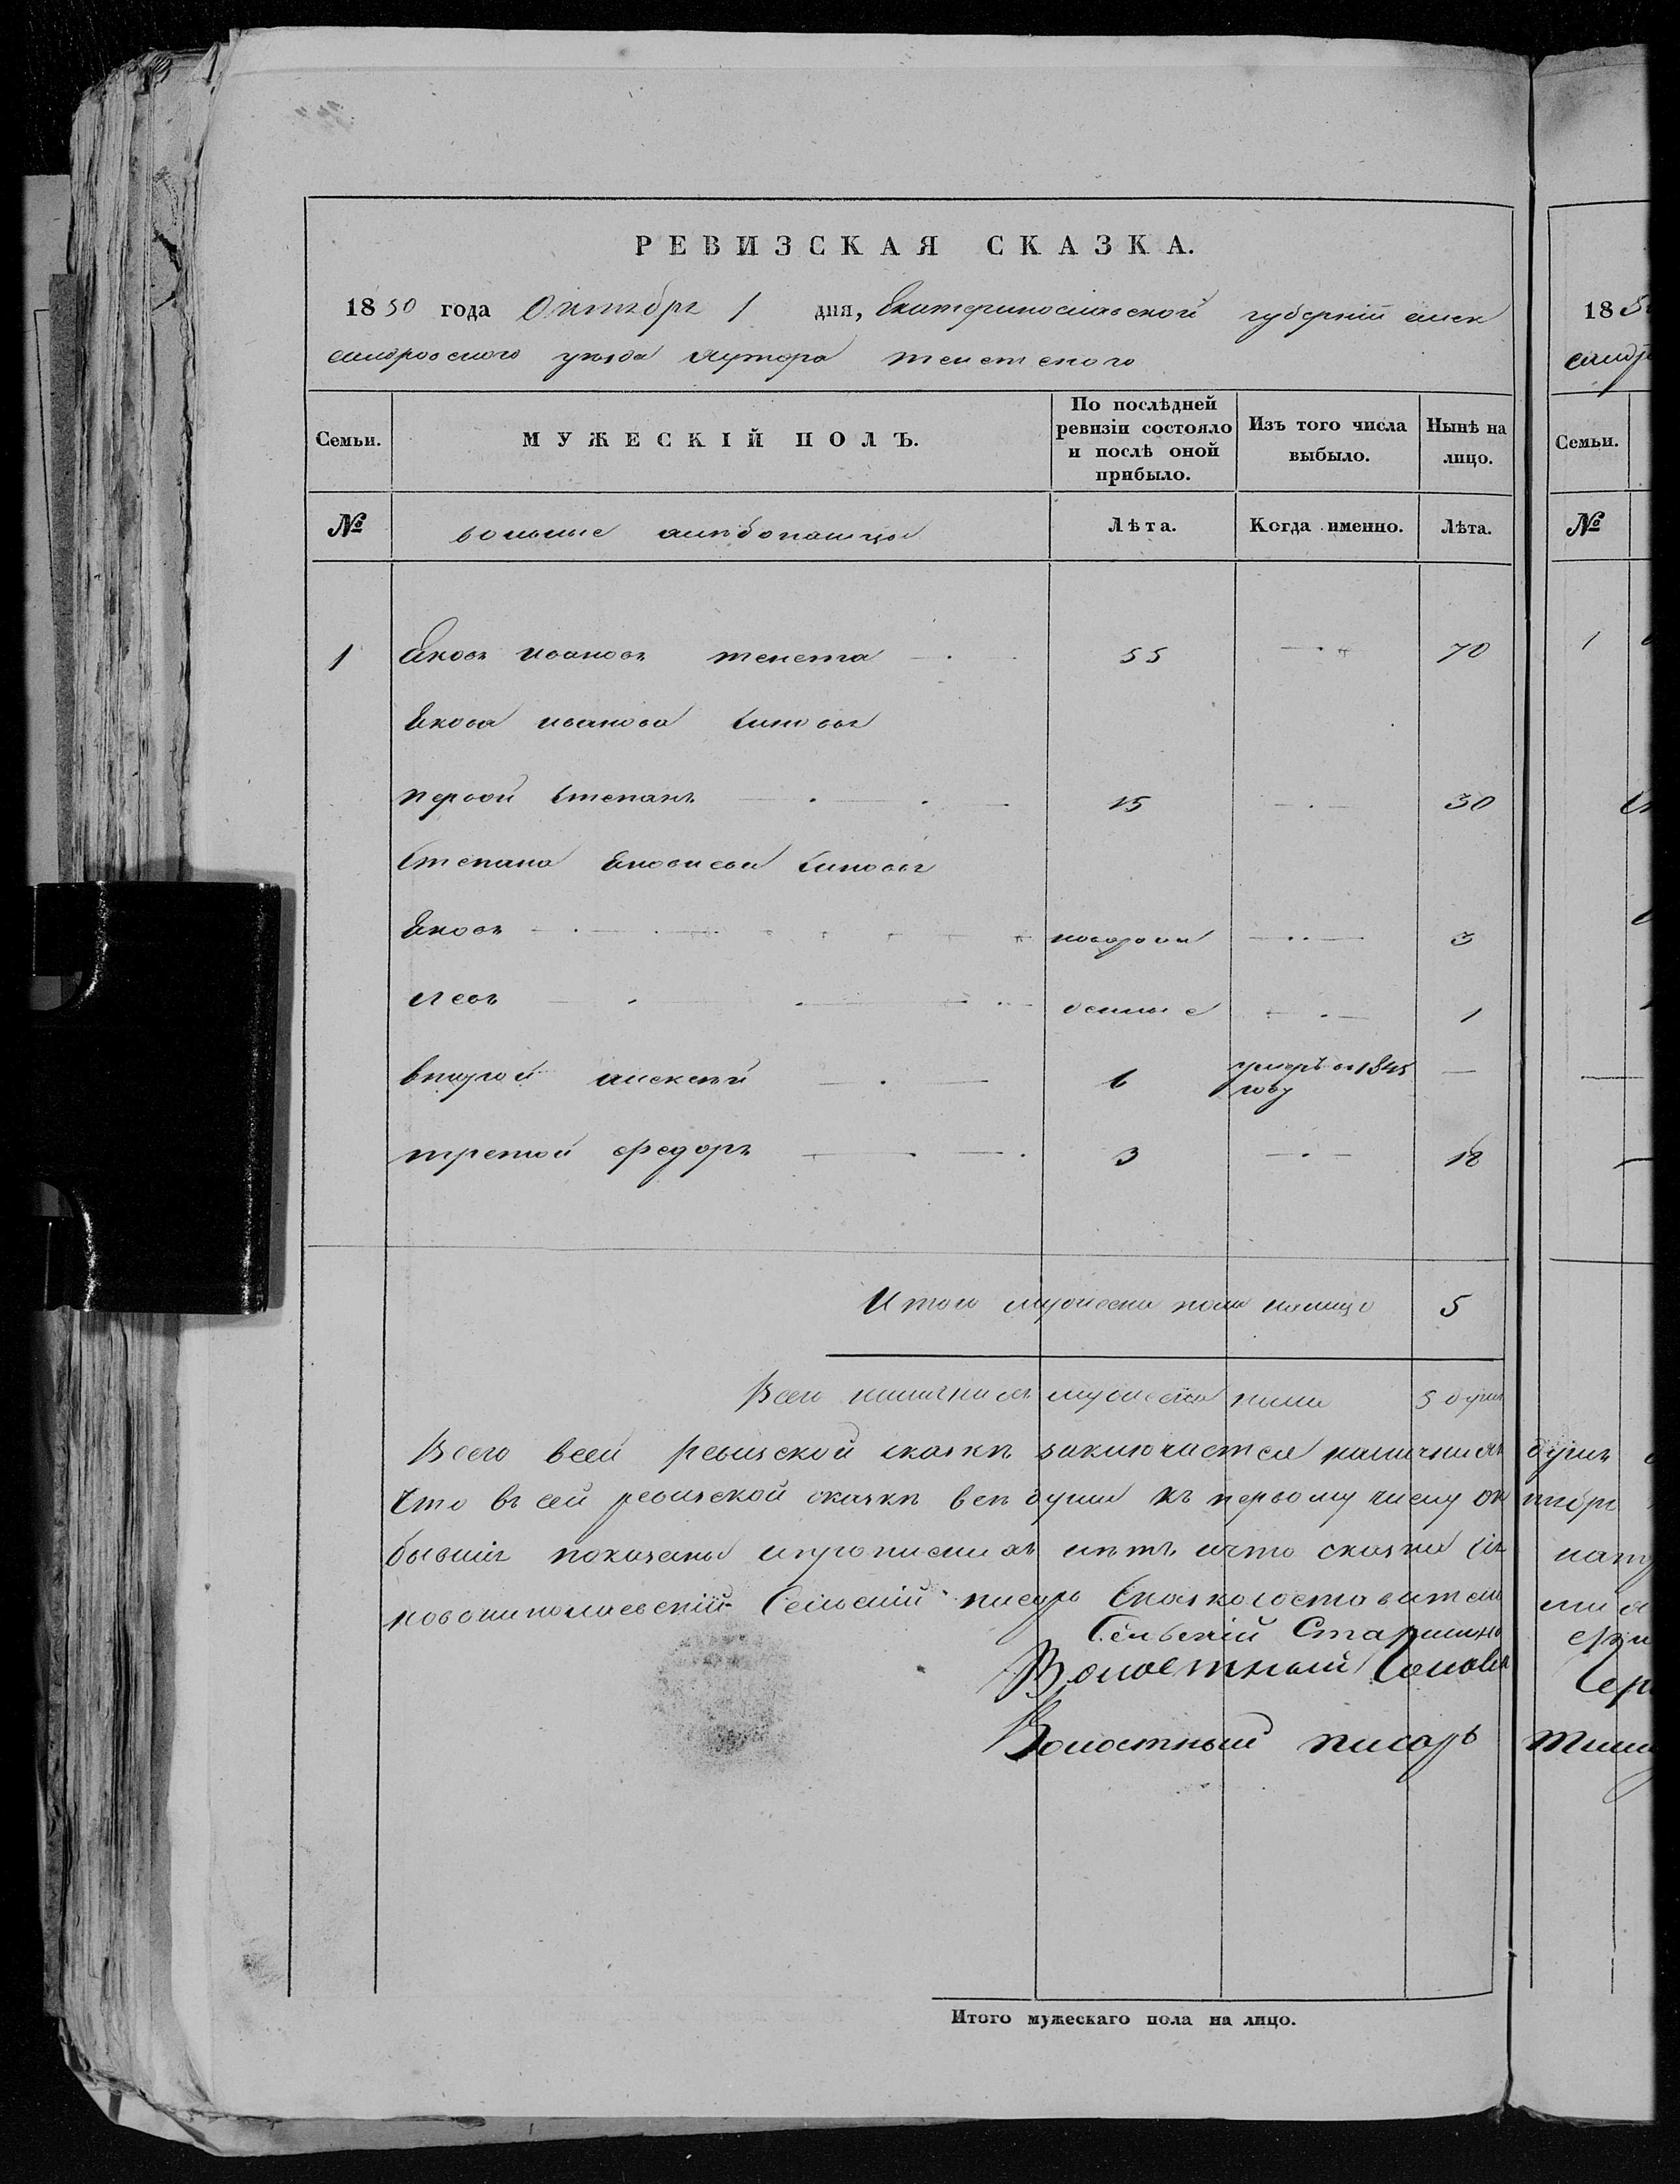 РЕВИЗСКАЯ СКАЗКА.
1850 года Октября 1 дня, Екатеринославской губерніи алек
сандровского уезда хутора тенетского
Семьи.
МУЖЕСКІЙ ПОЛЪ.
По послѣдней ревизіи состояло и послѣ оной прибыло.
Изъ того числа выбыло.
Нынѣ на лицо.
№
вольные хлебопашцы
Лѣта.
Когда именно.
Лѣта.
1 Яковъ Ивановъ тенета 55 70
Якова иванова Синовья
первой Степанъ 15 30
Степана Яковлева Синовья
Яковъ новорож 3
левъ денные 1
второй алексей 6 умеръ в 1845 году —
третой федоръ 3 18
Итого мужеска пола налицо 5
Всего наличныхъ мужеска пола 5 душъ
Всего всей ревизской сказкѣ заключается наличныхъ душъ
Что въ сей ревизской сказкѣ всѣ души къ первому числу ок тября
бывшія показаны и прописныхъ нѣтъ и что сказка сія
новониколаевскій Сельскій писарь Сказкосоставитель
Сельскій Старшина
Волостный Голова
Волостный писарь
Итого мужескаго пола на лицо.
18 5
Семьи.
№
1